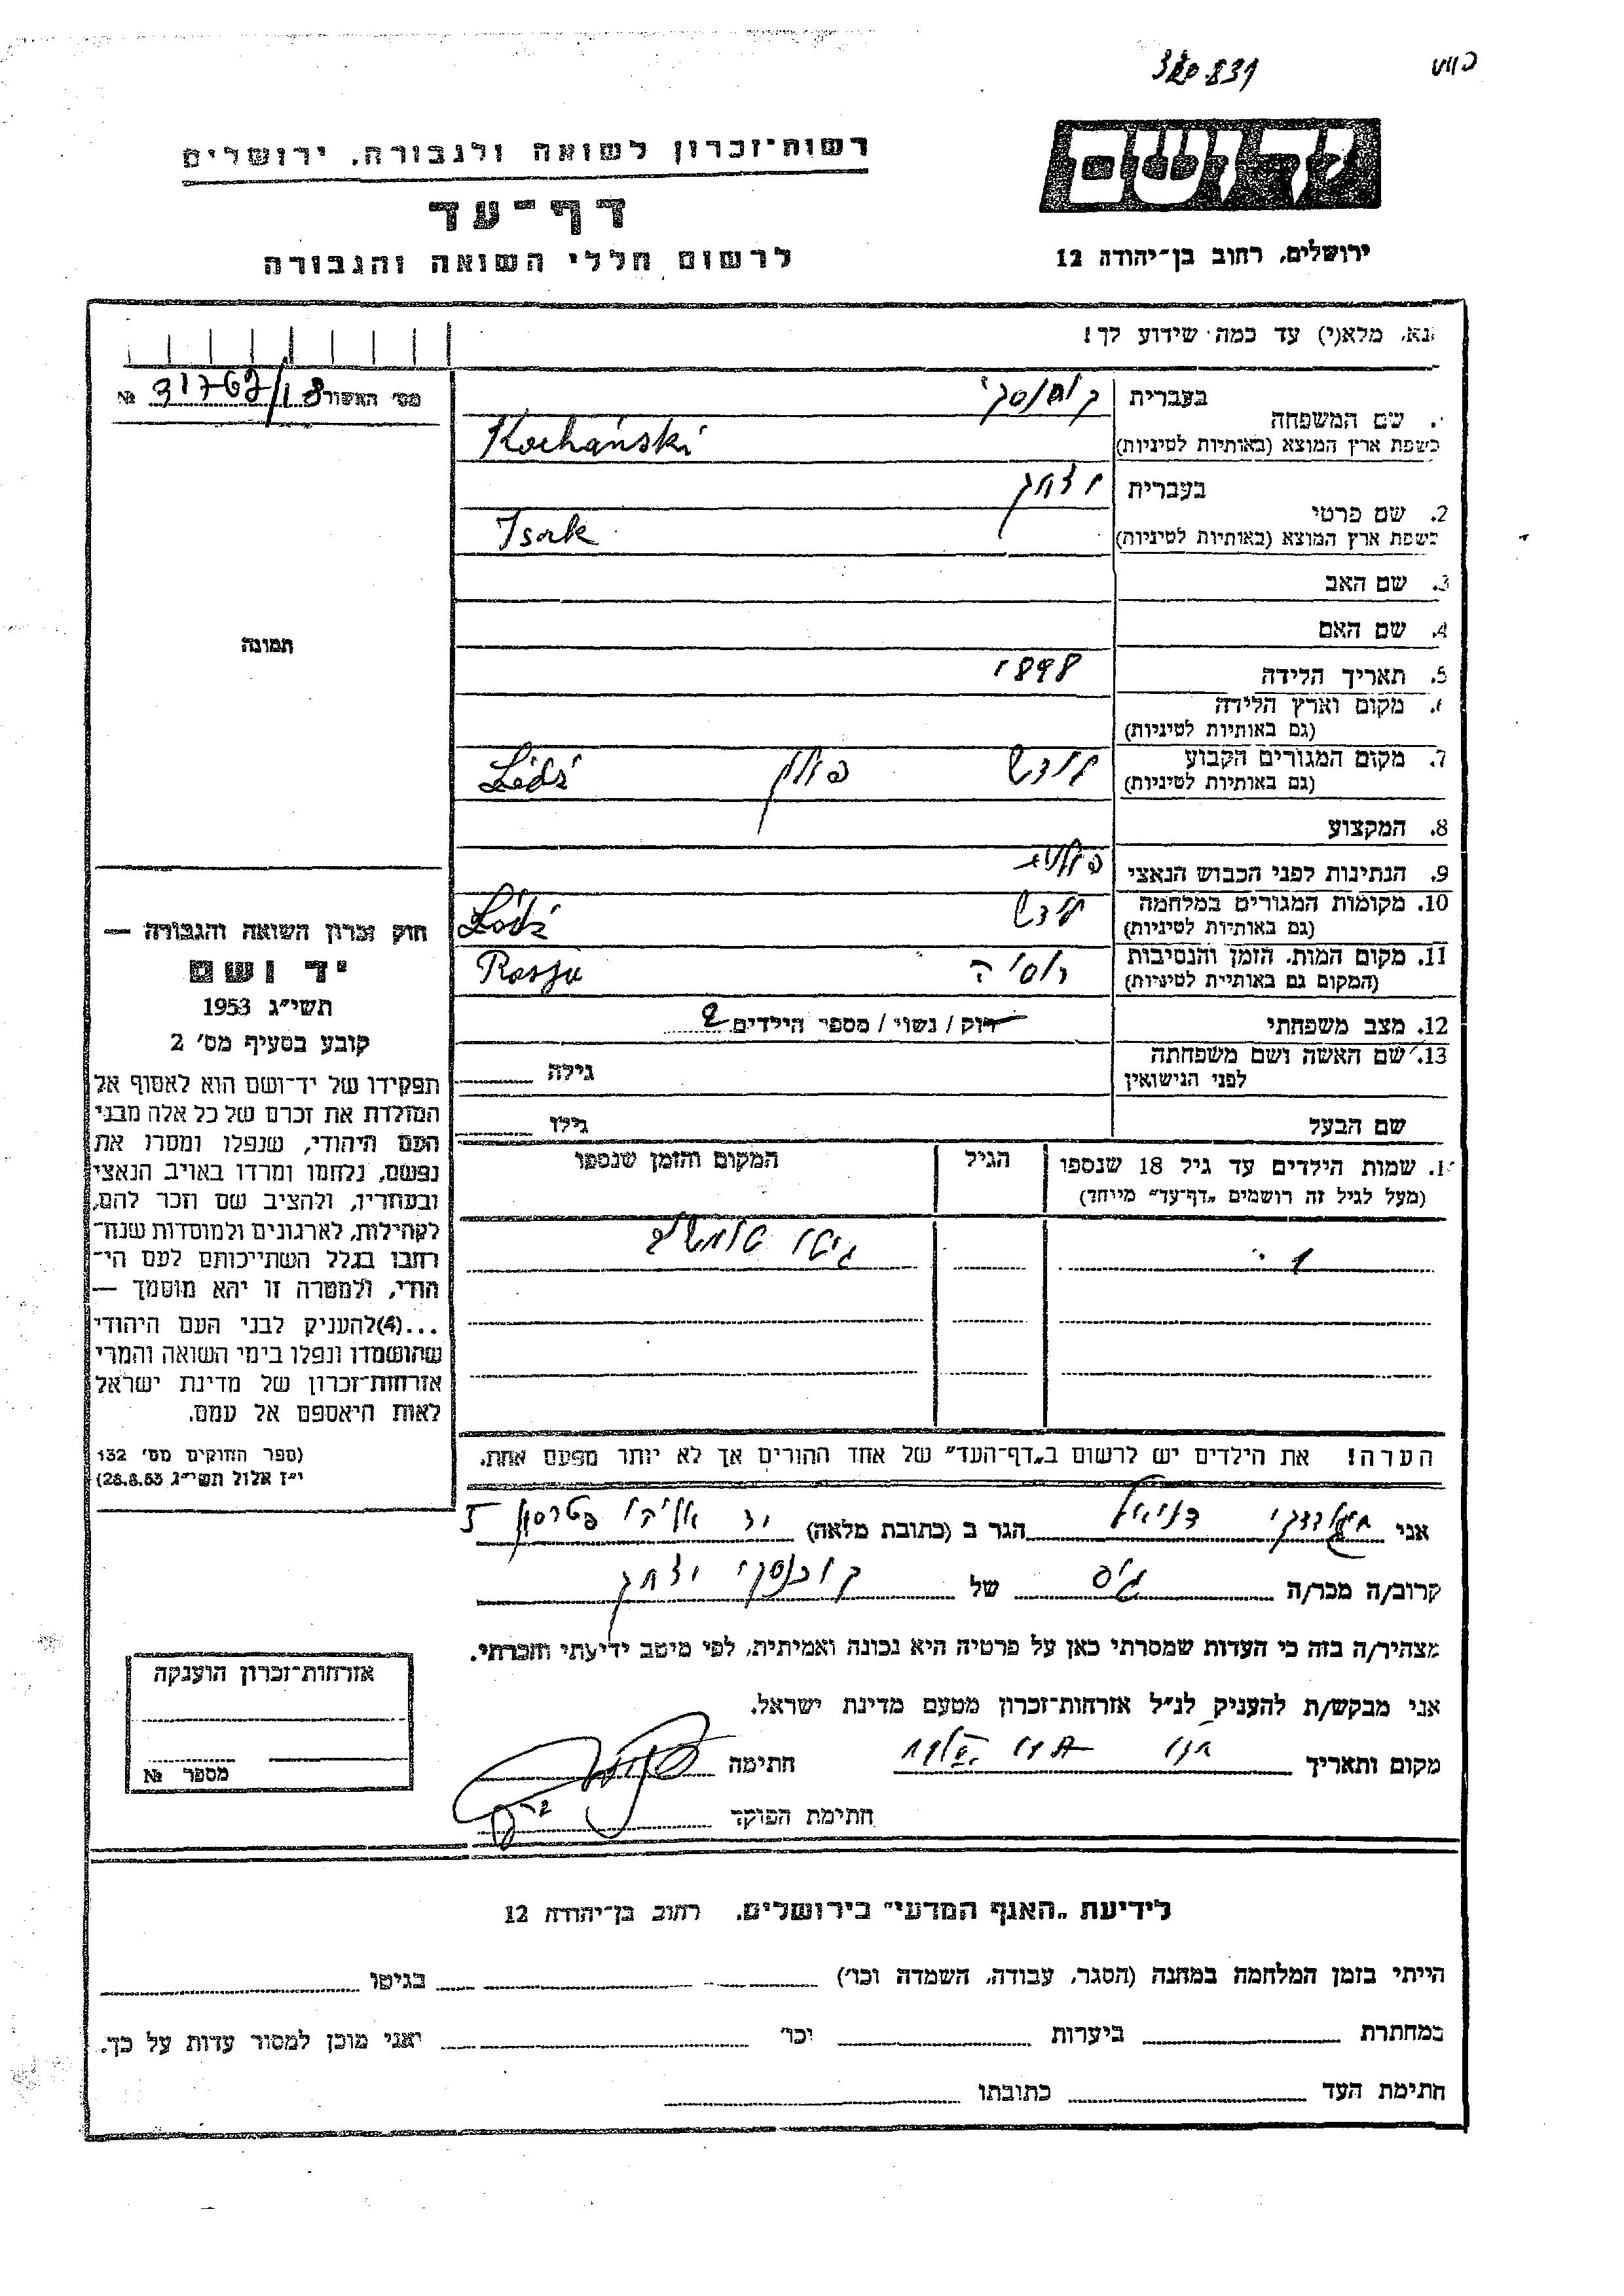 320.831
רשות־זכרון לשואה ולגבורה, ירושלים
דף־עד
לרשום חללי השואה והגבורה
יד ושם
ירושלים, רחוב בן־יהודה 12
נא, מלא(י) עד כמה שידוע לך!
מס' האשור 31767/18 №
תמונה
שם המשפחה
בעברית
בשפת ארץ המוצא (באותיות לטיניות) Kochański
2. שם פרטי
בעברית יצחק
בשפת ארץ המוצא (באותיות לטיניות) Isak
3. שם האב
4. שם האם
5. תאריך הלידה 1898
מקום וארץ הלידה
(גם באותיות לטיניות)
7. מקום המגורים הקבוע לודז פולין Łódź
(גם באותיות לטיניות)
8. המקצוע
9. הנתינות לפני הכבוש הנאצי פולנית
10. מקומות המגורים במלחמה לודז Łódź
(גם באותיות לטיניות)
11. מקום המות, הזמן והנסיבות רוסיה Rosja
(המקום גם באותיות לטיניות)
12. מצב משפחתי רווק / נשוי / מספר הילדים 2
13. שם האשה ושם משפחתה גילה
לפני הנישואין
שם הבעל גילו
שמות הילדים עד גיל 18 שנספו הגיל המקום והזמן שנספו
(מעל לגיל זה רושמים „דף־עד" מיוחד)
1
הערה! את הילדים יש לרשום ב„דף־העד" של אחד ההורים אך לא יותר מפעם אחת.
אני דניאל הגר ב (כתובת מלאה)
קרוב/ה מכר/ה גיס של קוכנסקי יצחק
מצהיר/ה בזה כי העדות שמסרתי כאן על פרטיה היא נכונה ואמיתית, לפי מיטב ידיעתי והכרתי.
אני מבקש/ת להעניק לנ"ל אזרחות־זכרון מטעם מדינת ישראל.
מקום ותאריך חתימה
חתימת הפוקד
חוק זכרון השואה והגבורה —
יד ושם
תשי"ג 1953
קובע בסעיף מס' 2
תפקידו של יד־ושם הוא לאסוף אל
המולדת את זכרם של כל אלה מבני
העם היהודי, שנפלו ומסרו את
נפשם, נלחמו ומרדו באויב הנאצי
ובעוזריו, ולהציב שם וזכר להם,
לקהילות, לארגונים ולמוסדות שנח־
רבו בגלל השתייכותם לעם הי־
הודי, ולמטרה זו יהא מוסמך —
...(4)להעניק לבני העם היהודי
שהושמדו ונפלו בימי השואה והמרי
אזרחות־זכרון של מדינת ישראל
לאות היאספם אל עמם.
(ספר החוקים מס' 132
י"ז אלול תשי"ג 28.8.53)
אזרחות־זכרון הוענקה
מספר №
לידיעת „האגף המדעי" בירושלים, רחוב בן־יהודה 12
הייתי בזמן המלחמה במחנה (הסגר, עבודה, השמדה וכו') בגיטו
במחתרת ביערות וכו' ואני מוכן למסור עדות על כך.
חתימת העד כתובתו